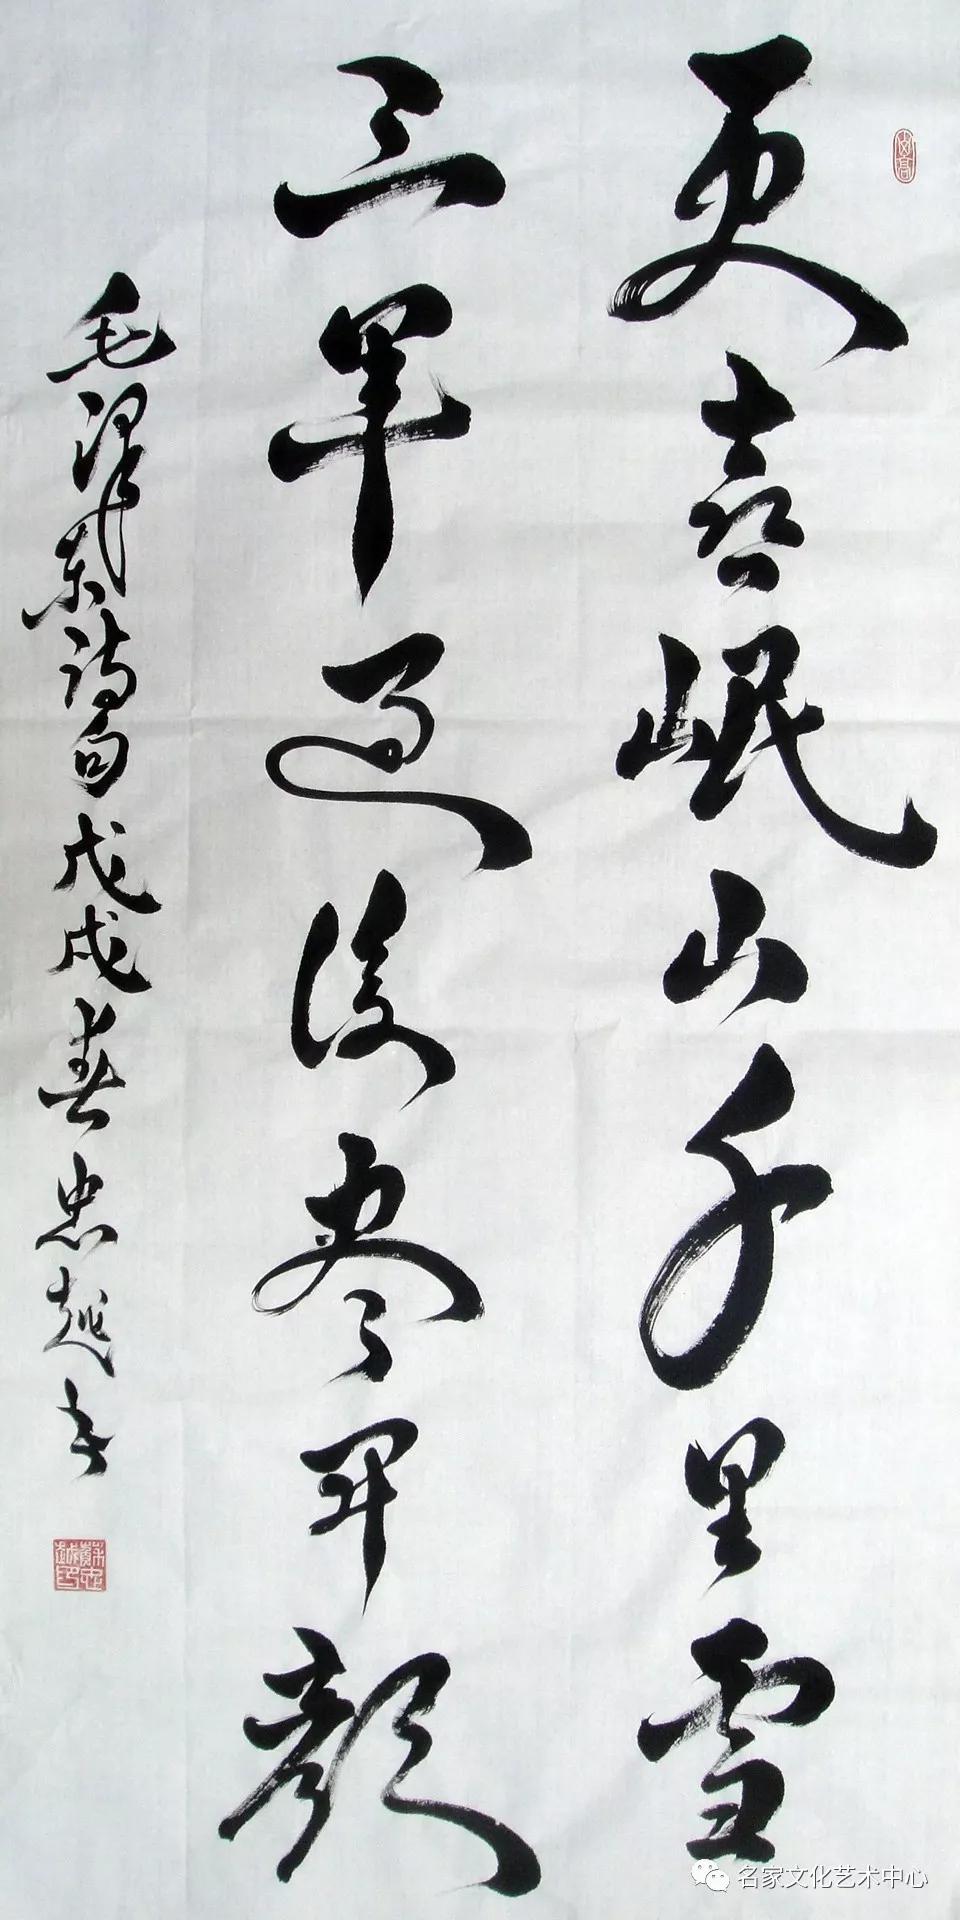 更喜岷山千里雪
三军过后尽开颜
毛泽东诗句戊戌春忠越书
名家文化艺术中心